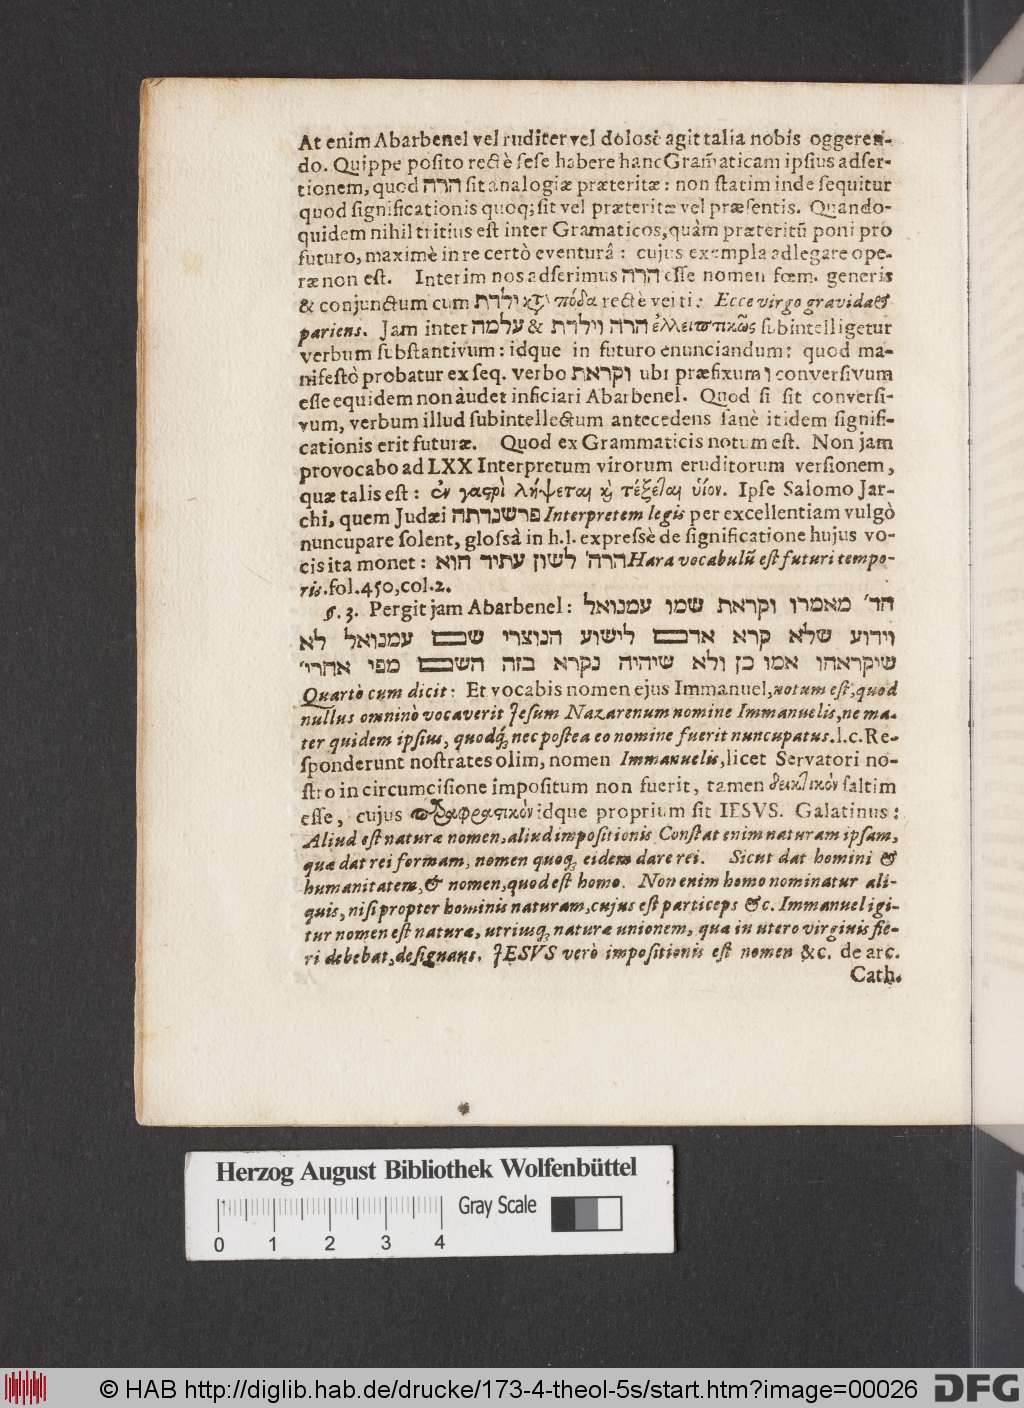 At enim Abarbenel vel ruditer vel dolosè agit talia nobis oggeren-
do. Quippe posito rectè sese habere hanc Gram̃aticam ipsius adser-
tionem, quod הרה sit analogiæ præteritæ: non statim inde sequitur
quod significationis quoq; sit vel præteritæ vel præsentis. Quando-
quidem nihil tritius est inter Gramaticos, quàm præteritũ poni pro
futuro, maximè in re certò eventurâ: cujus exempla adlegare ope-
ræ non est. Interim nos adserimus הרה esse nomen fœm. generis
& conjunctum cum ילדת κτ πόδα rectè verti: Ecce virgo gravida &
pariens. Jam inter עלמה & הרה וילדת ἐλλειπτικῶς subintelligetur
verbum substantivum: idque in futuro enunciandum: quod ma-
nifestò probatur ex seq. verbo וקראת ubi præfixum ו conversivum
esse equidem non audet inficiari Abarbenel. Quod si sit conversi-
vum, verbum illud subintellectum antecedens sanè itidem signifi-
cationis erit futuræ. Quod ex Grammaticis notum est. Non jam
provocabo ad LXX Interpretum virorum eruditorum versionem,
quæ talis est: ἐν γαστρὶ λήψεται κὴ τέξεται ὑίον. Ipse Salomo Jar-
chi, quem Judæi פרשנדתה Interpretem legis per excellentiam vulgò
nuncupare solent, glossâ in h.l. expressè de significatione hujus vo-
cis ita monet: הרה' לשון עתיד הוא Hara vocabulũ est futuri tempo-
ris. fol. 450, col. 2.
§. 3. Pergit jam Abarbenel: הד' מאמרו וקראת שמו עמנואל
וידוע שלא קרא אדם לישוע הנוצרי שם עמנואל לא
שיקראהו אמו כן ולא שיהיה נקרא בזה השם מפי אחרי'
Quartò cum dicit: Et vocabis nomen ejus Immanuel, notum est, quod
nullus omninò vocaverit Jesum Nazarenum nomine Immanuelis, ne ma-
ter quidem ipsius, quodq; nec postea eo nomine fuerit nuncupatus. l.c. Re-
sponderunt nostrates olim, nomen Immanuelis, licet Servatori no-
stro in circumcisione impositum non fuerit, tamen δεικτικόν saltim
esse, cujus παραφραστικόν idque proprium sit IESVS. Galatinus:
Aliud est naturæ nomen, aliud impositionis Constat enim naturam ipsam,
quæ dat rei formam, nomen quoq; eidem dare rei. Sicut dat homini &
humanitatem, & nomen, quod est homo. Non enim homo nominatur ali-
quis, nisi propter hominis naturam, cujus est particeps &c. Immanuel igi-
tur nomen est naturæ, utriusq; naturæ unionem, quæ in utero virginis fie-
ri debebat, designans. JESVS verò impositionis est nomen &c. de arc.
Cath.
Herzog August Bibliothek Wolfenbüttel
Gray Scale
0 1 2 3 4
© HAB http://diglib.hab.de/drucke/173-4-theol-5s/start.htm?image=00026
DFG